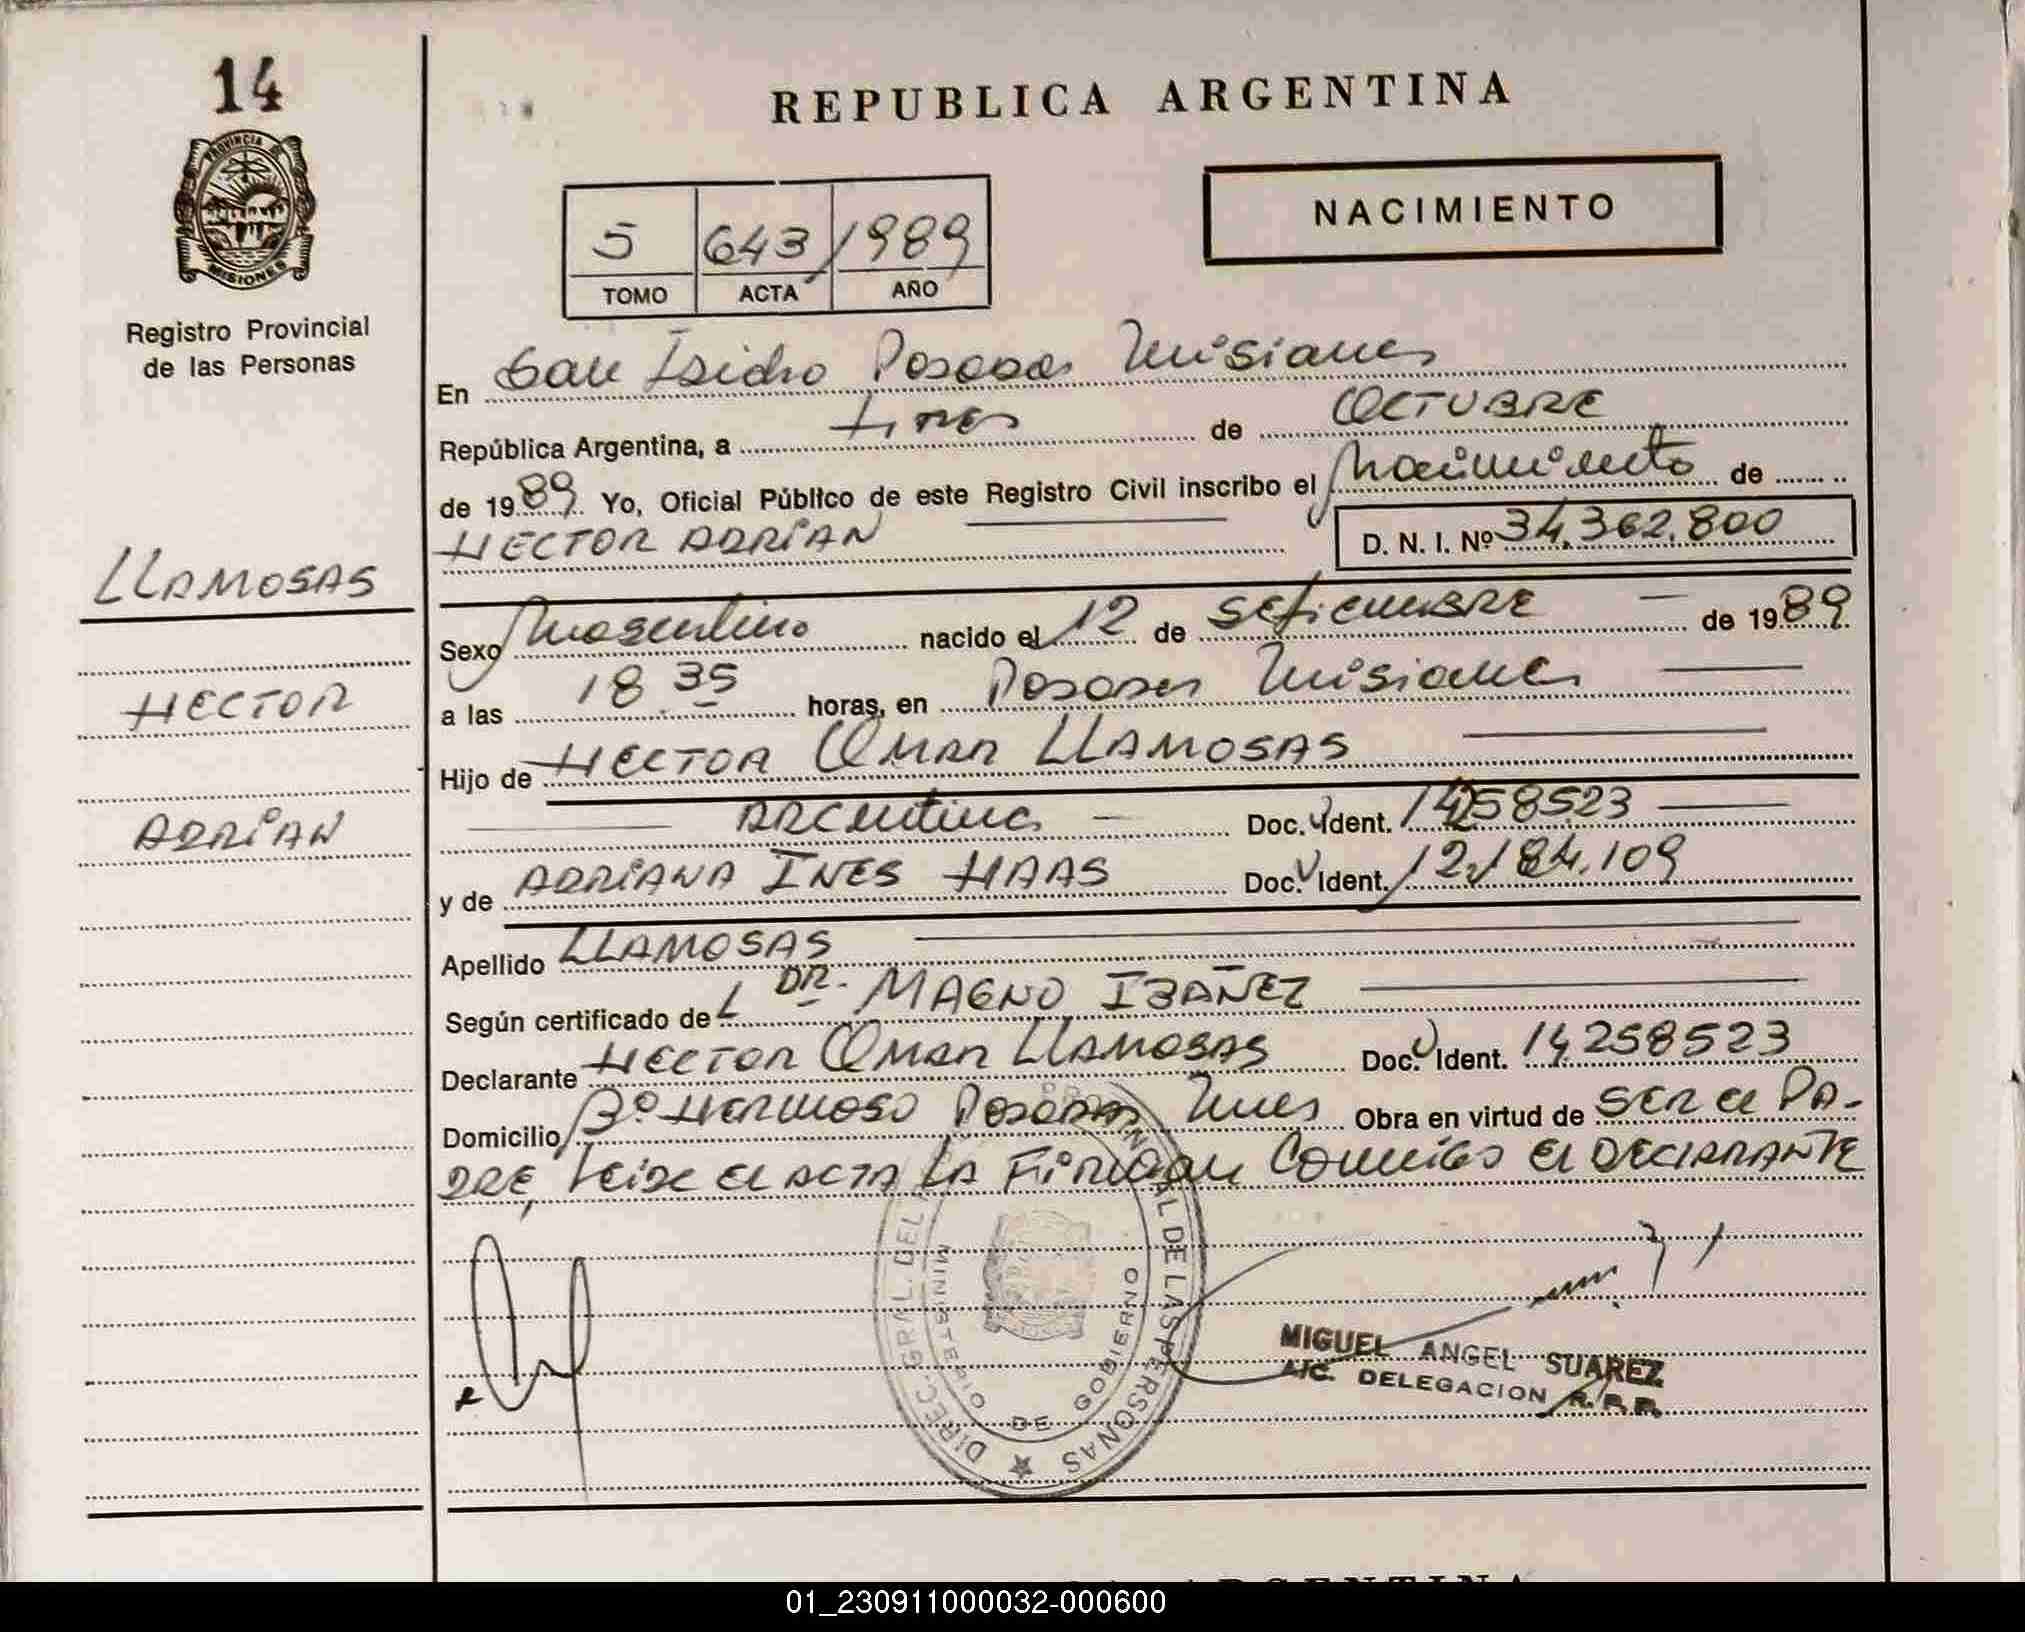 14
PROVINCIA
MISIONES
Registro Provincial
de las Personas
REPUBLICA ARGENTINA
NACIMIENTO
5 643 1989
TOMO ACTA AÑO
En San Isidro Posadas Misiones
República Argentina, a tres de OCTUBRE
de 1989 Yo, Oficial Público de este Registro Civil inscribo el Nacimiento de
HECTOR ADRIAN D. N. I. Nº 34.362.800
LLAMOSAS
HECTOR
ADRIAN
Sexo Masculino nacido el 12 de SETIEMBRE de 1989
a las 18.35 horas, en Posadas Misiones
Hijo de HECTOR OMAR LLAMOSAS
ARGENTINO Doc. Ident. 14258523
y de ADRIANA INES HAAS Doc. Ident. 12.184.109
Apellido LLAMOSAS
Según certificado de DR. MAGNO IBAÑEZ
Declarante HECTOR OMAR LLAMOSAS Doc. Ident. 14258523
Domicilio Bº HERMOSO Posadas Mnes Obra en virtud de SER el PA-
DRE, Leida el ACTA LA FIRMAN Conmigo el DECLARANTE
DIREC. GRAL. DEL REG. PROVINCIAL DE LAS PERSONAS
MINISTERIO DE GOBIERNO
MIGUEL ANGEL SUAREZ
A/C. DELEGACION R.P.P.
01_230911000032-000600